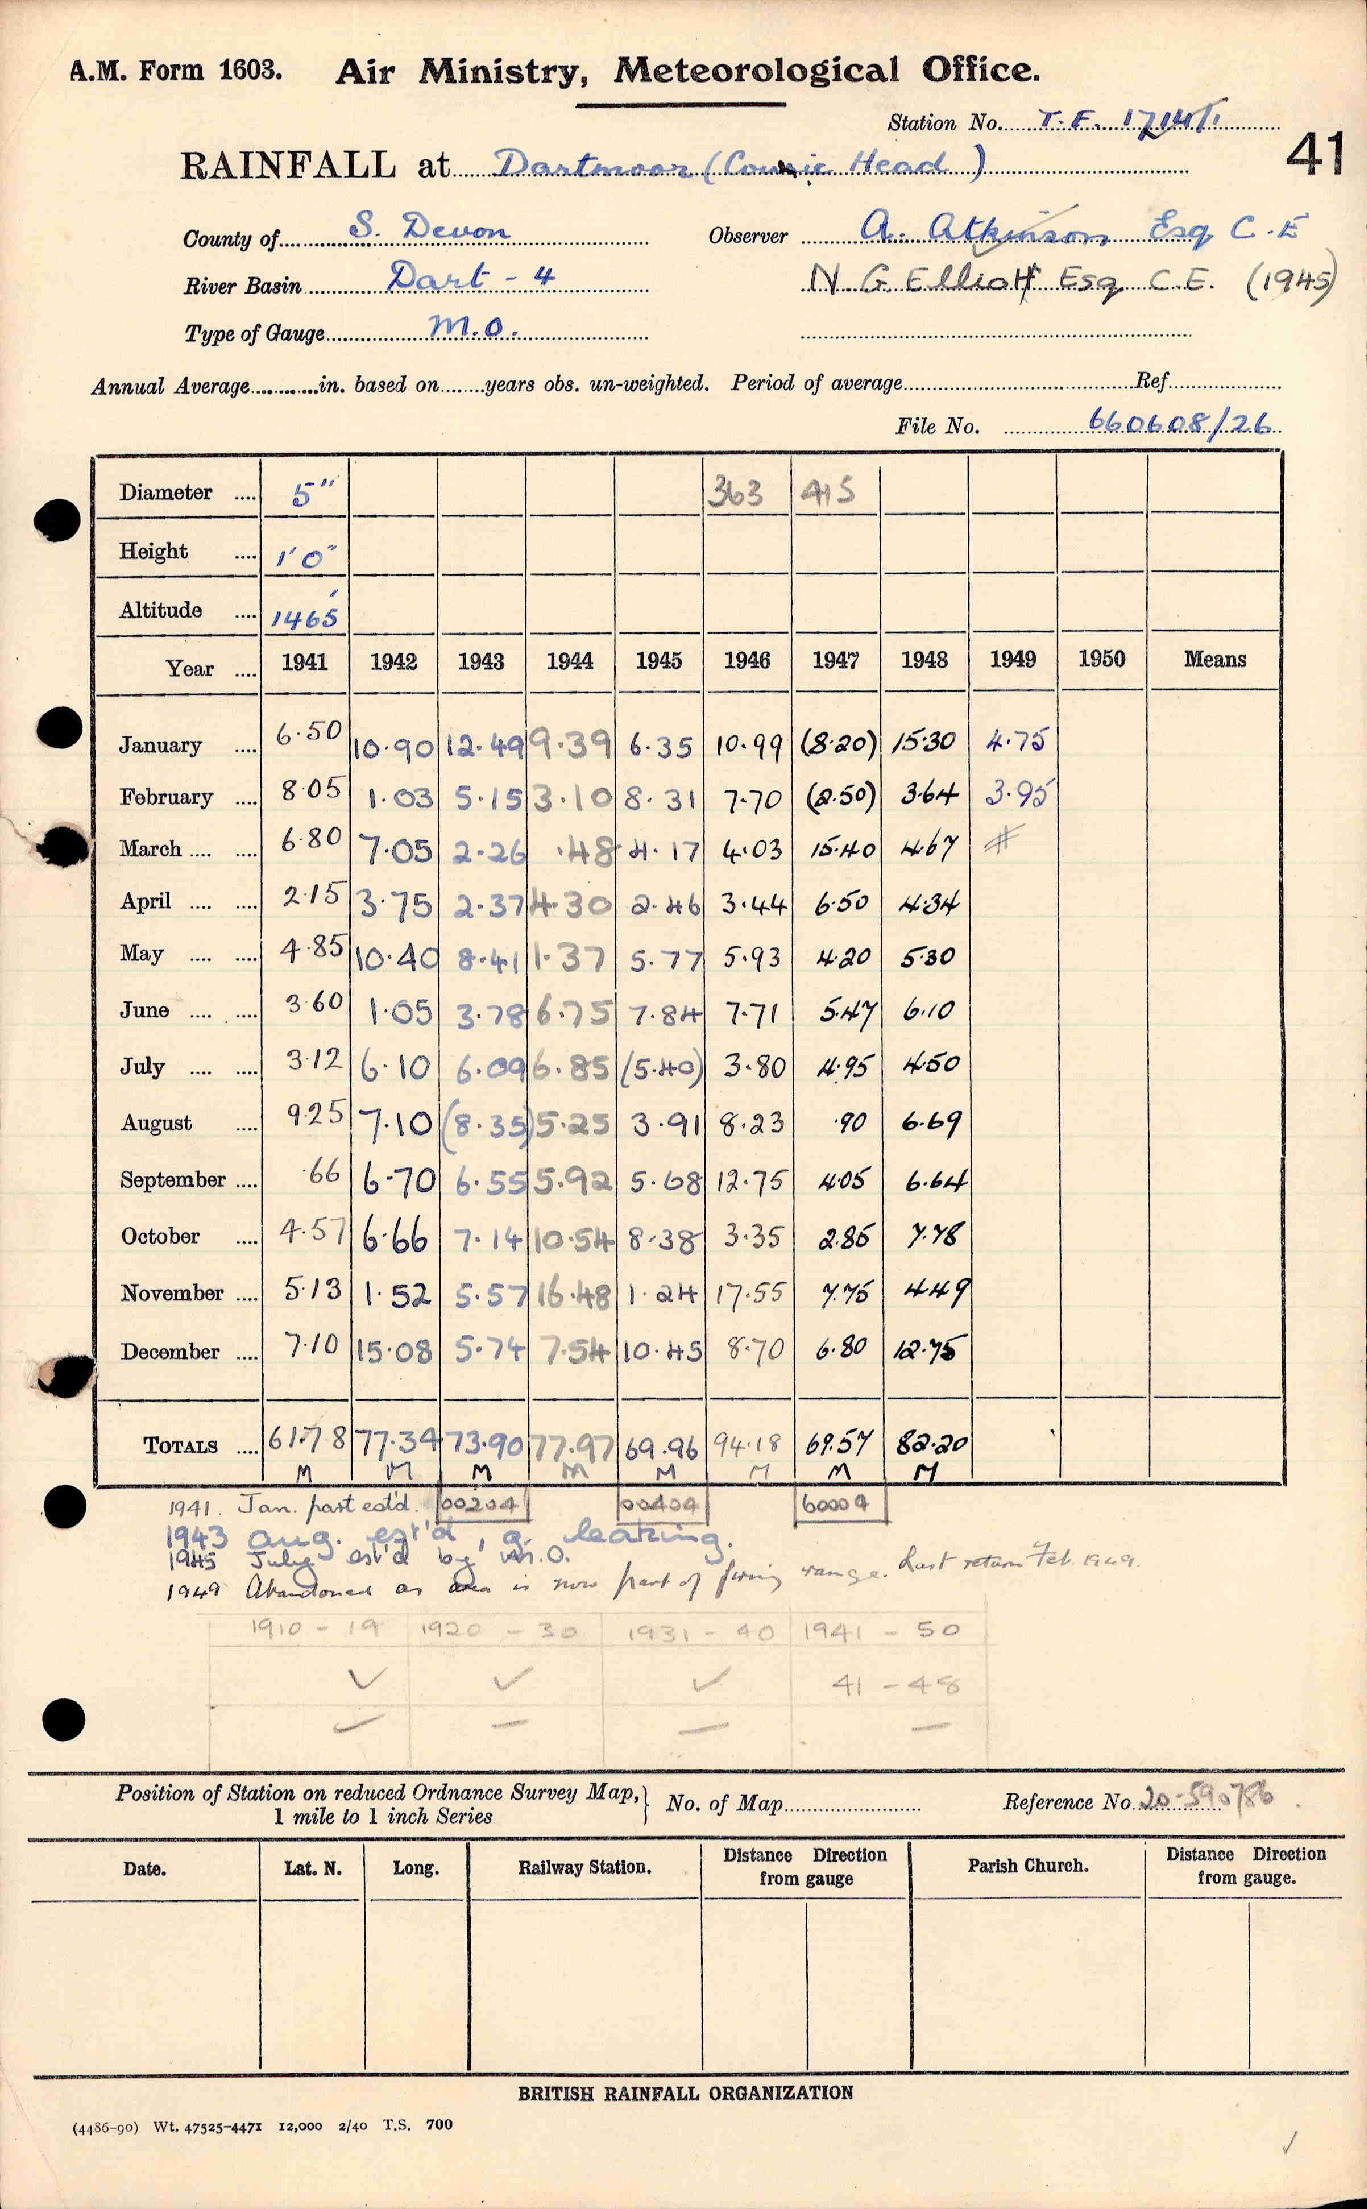 A.M. Form 1603. Air Ministry, Meteorological Office.
Station No. T.F. 1714/1
41
RAINFALL at Dartmoor (Cowsic Head)
County of S. Devon Observer A. Atkinson Esq C.E
River Basin Dart - 4 N. G Elliott Esq C.E. (1945)
Type of Gauge M.O.
Annual Average in. based on years obs. un-weighted. Period of average Ref
File No. 660608/26
Diameter .... 5" 363 415
Height .... 1'0"
Altitude .... 1465'
Year .... 1941 1942 1943 1944 1945 1946 1947 1948 1949 1950 Means
January .... 6.50 10.90 12.49 9.39 6.35 10.99 (8.20) 15.30 4.75
February .... 8.05 1.03 5.15 3.10 8.31 7.70 (2.50) 3.64 3.95
March .... .... 6.80 7.05 2.26 .48 4.17 4.03 15.40 4.67 #
April .... .... 2.15 3.75 2.37 4.30 2.46 3.44 6.50 4.34
May .... .... 4.85 10.40 8.41 1.37 5.77 5.93 4.20 5.30
June .... .... 3.60 1.05 3.78 6.75 7.84 7.71 5.47 6.10
July .... .... 3.12 6.10 6.09 6.85 (5.40) 3.80 4.95 4.50
August .... 9.25 7.10 (8.35) 5.25 3.91 8.23 .90 6.69
September .... .66 6.70 6.55 5.92 5.68 12.75 4.05 6.64
October .... 4.57 6.66 7.14 10.54 8.38 3.35 2.85 7.78
November .... 5.13 1.52 5.57 16.48 1.24 17.55 7.75 4.49
December .... 7.10 15.08 5.74 7.54 10.45 8.70 6.80 12.75
TOTALS .... 61.78 77.34 73.90 77.97 69.96 94.18 69.57 82.20
M M M M M M M M
1941. Jan. part est'd. 00204 00404 60004
1943 Aug. est'd, g. leaking.
1945 July est'd by M.O.
1949 Abandoned as area is now part of firing range. Last return Feb. 1949.
1910 - 19 1920 - 30 1931 - 40 1941 - 50
✓ ✓ ✓ 41 - 48
Position of Station on reduced Ordnance Survey Map, } No. of Map Reference No 20-590786
1 mile to 1 inch Series
Date. Lat. N. Long. Railway Station. Distance Direction from gauge Parish Church. Distance Direction from gauge.
BRITISH RAINFALL ORGANIZATION
(4486-90) Wt. 47525-4471 12,000 2/40 T.S. 700